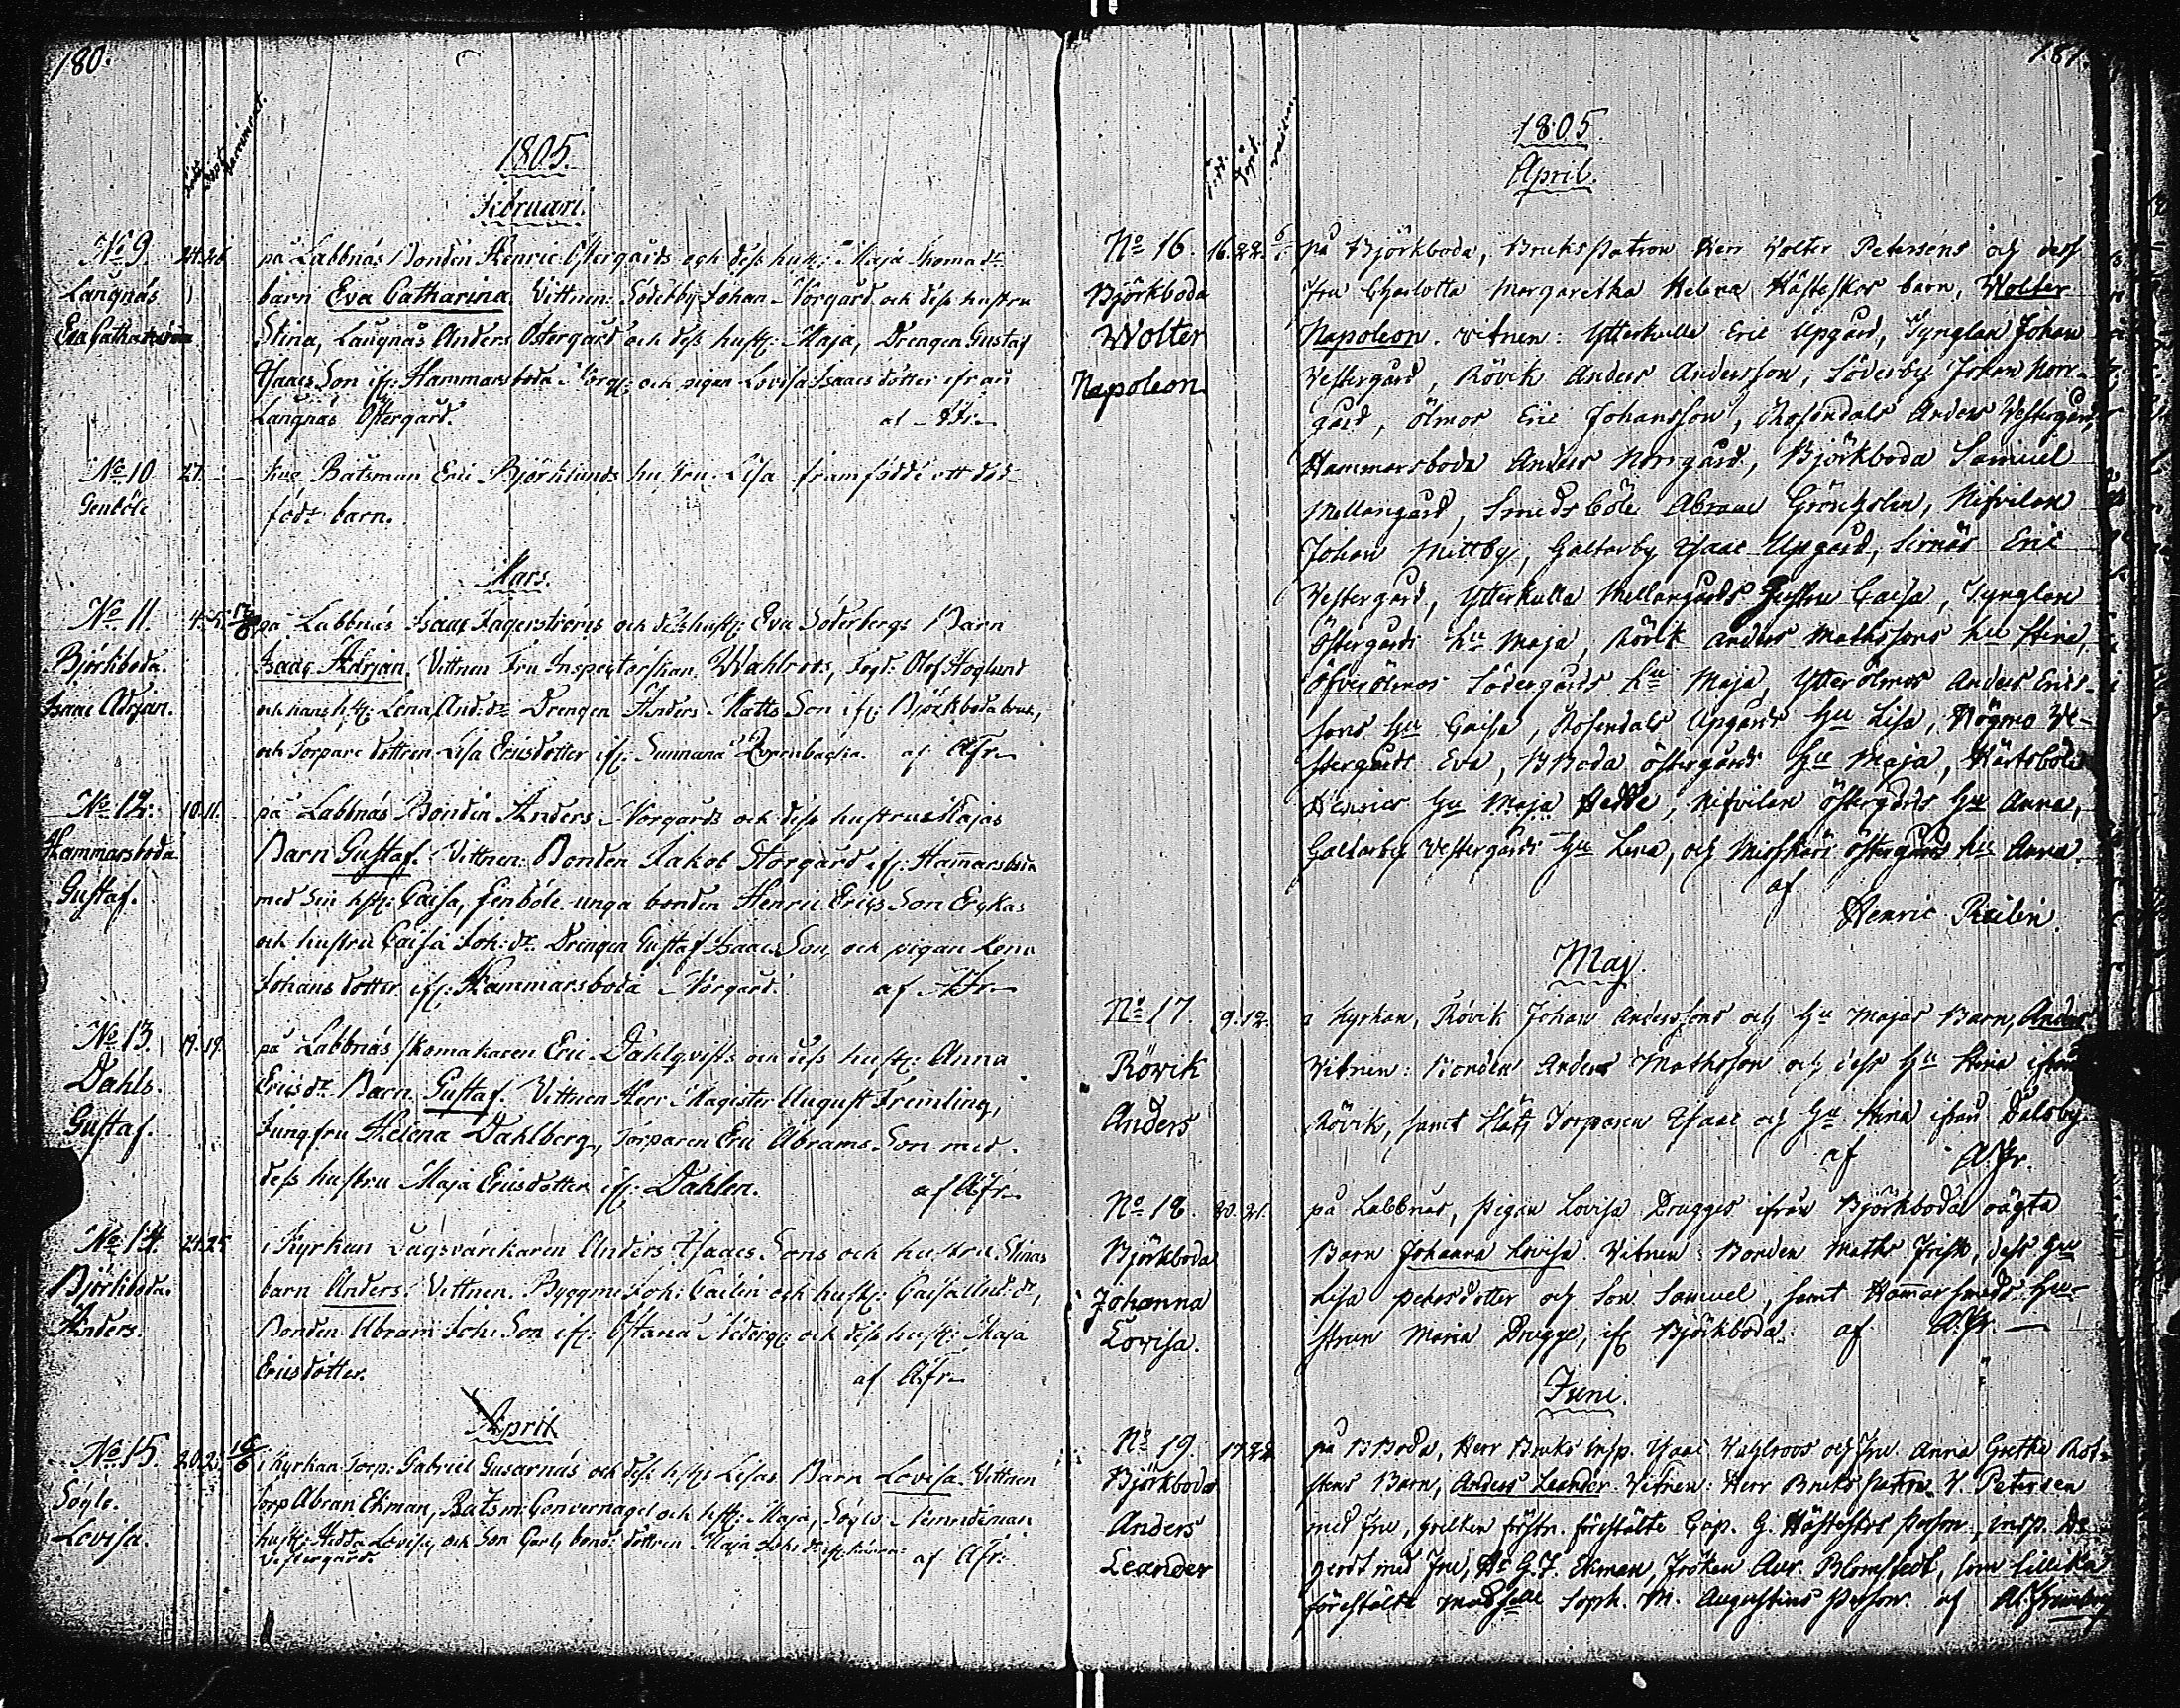 180.
1805.
Februari.
No 9 24. 26. på Labbnäs Bonden Henric Östergårds och dess hust: Maja Thomæ dr
Långnäs barn Eva Catharina. Vittnen: Söderby Johan Norgård och dess hustru
Eva Catharina Stina, Långnäs Anders Östergård och dess hustr: Maja, Drengen Gustaf
Isaacs Son ifr: Hammarsboda Norg: och pigan Lovisa Isaacs dotter ifrån
Långnäs Östergård. af A Fr.
No 10 27. Båtsman Eric Björklunds hustru Lisa framfödde ett död-
Genböle födt barn.
Mars.
No 11 4. 5. på Labbnäs Isaac Fagerströms och dess hust: Eva Söderbergs Barn
Björkboda. Isaac Adrian. Vittnen Fru Inspectorskan Wahlroos, Fogd: Olof Höglund
Isaac Adrian. och hans h: Lena And: dr Drengen Anders Matts Son ifr: Björkboda bruk,
och Torpare dottren Lisa Ericsdotter ifr: Sunnanå af A Fr.
No 12. 10. 11. på Labbnäs Bonden Anders Norgårds och dess hustrus Majas
Hammarsboda Barn Gustaf. Vittnen: Bonden Jakob Storgård ifr: Hammarsboda
Gustaf. med Sin hust: Caisa, Genböle unga bonden Henric Erics Son Erykas
och hustru Caisa Joh: dr Drengen Gustaf Isaacs Son, och pigan Lena
Johans dotter ifr: Hammarsboda Norgård. af A Fr.
No 13. 19. 19. på Labbnäs Skomakaren Eric Dahlqvists och dess hustr: Anna
Dahls. Erics dr Barn Gustaf. Vittnen Herr Magister August Fremling,
Gustaf. Jungfru Helena Dahlberg, Torparen Eric Abrams Son med
dess hustru Maja Ericsdotter ifr: Dahlen. af A Fr.
No 14. 24. 25. i Kyrkan Dagsverkaren Anders Isaacs Sons och hustru Stinas
Björkboda. barn Anders. Vittnen. Byggm: Joh: Cailén och hustr: Caisa And: dr,
Anders. Bonden Abram Joh: Son ifr: Östanå Nederg: och dess hustr: Maja
Ericsdotter. af A Fr.
April
No 15. 20. 21. i Kyrkan Torp: Gabriel Gusarnäs och dess hust: Lisas Barn Lovisa. Vittnen
Söglö. Torp Abran Ekman, Båtsm: och hust: Maja, Söglö
Lovisa. hust: Hedda Lovisa, och Son Carl, bond: dottren Maja Joh: dr
Vestergård. af A Fr.
181.
1805.
April.
No 16. 16. 22. på Björkboda, Bruks Patron Herr Wolter Petersens och dess
Björkboda Fru Charlotta Margaretha Helena Hästeskos barn, Wolter
Wolter Napoleon. Vitnen: Ytterkulla Eric Upgård, Tynglan Johan
Napoleon Vestergård, Rövik Anders Andersson, Söderby Johan Norr-
gård, Ölmos Eric Johansson, Rosendals Anders Vestergård,
Hammarsboda Anders Norrgård, Björkboda Samuel
Mellangård, Smedsböle Abram, Nifvilan
Johan Mittby, Galtarby Isaac Upgård, Sirnäs Eric
Vestergård, Ytterkulla Mellangårds Hustru Caisa, Tynglan
Östergårds Hu Maja, Rövik Anders Mathssons Hu Stina,
Öfverölmos Södergårds Hu Maja, Ytterölmos Anders Erics-
sons Hu Caisa, Rosendals Upgårds Hu Lisa, Högmo We-
stergårds Eva, B Boda Östergårds Hu Maja, Härtsböle
Henrics Hu Maja Hedda, Nifvilan Östergårds Hu Anna,
Galtarby Vestergårds Hu Lena, och Misskärs Östergårds Hu Anna.
af
Henric Reilin.
Maj.
No 17. 9. 12. i Kyrkan, Rövik Johan Anderssons och Hu Majas Barn, Anders
Röwik Vitnen: Bonden Anders Mathsson och dess Hu Stina ifrån
Anders Rövik, samt Torparen Isaac och Hu Stina ifrån Dalsby
af A. Fr.
No 18. 20. 21. på Labbnäs, Pigan Lovisa Drugges ifrån Björkboda oägta
Björkboda Barn Johanna Lovisa. Vitnen: Bonden Maths Frisk, dess Hu
Johanna Lisa Petersdotter och Son Samuel, samt Hammarsmeds Hu-
Lovisa. strun Maria Drugge, ifr Björkboda. af A. Fr.
Juni.
No 19. 17. 22. på B Boda, Herr Bruks Insp. Isaac Wahlroos och Fru Anna Greta Rot-
Björkboda stens Barn, Anders Leander. Vitnen: Herr Bruks Patron W. Petersen
Anders med Fru, hvilken förstn. förestälte Cap. G. Hästeskos Person, insp. De-
Leander gerdt med Fru, Hr G. J. Ekman, Fröken Aur. Blomstedt, som tillika
förestälte Madselle Soph. M. Augustins Person. af A. Fremling